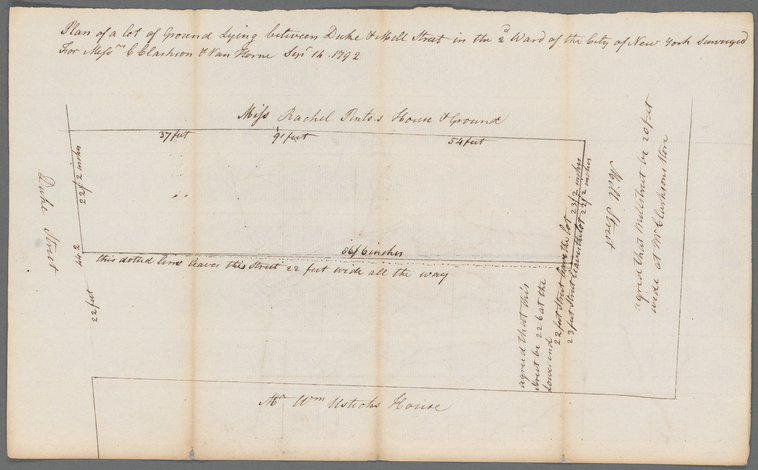 Plan of a lot of Ground Lying between Duke & Mill Street in the 2d Ward of the City of New York Surveyed
For Messrs C Clarkson & Van Horne Sepr 14 1792
Miss Rachel Pintos House & Ground
37 feet
91 feet
54 feet
Duke Street
22 f 2 inches
22 feet
86 f 6 inches
this dotted line leaves this Street 22 feet wide all the way
agreed that this
Street be 22 6 at the
Lower end
22 feet Street leave the lot 23 f 2 inches
23 feet Street leave the lot 22 f 2 inches
Mill Street
agreed that Mill Street be 20 feet
wide at Mr Clarksons Store
Mr Wm Usticks House